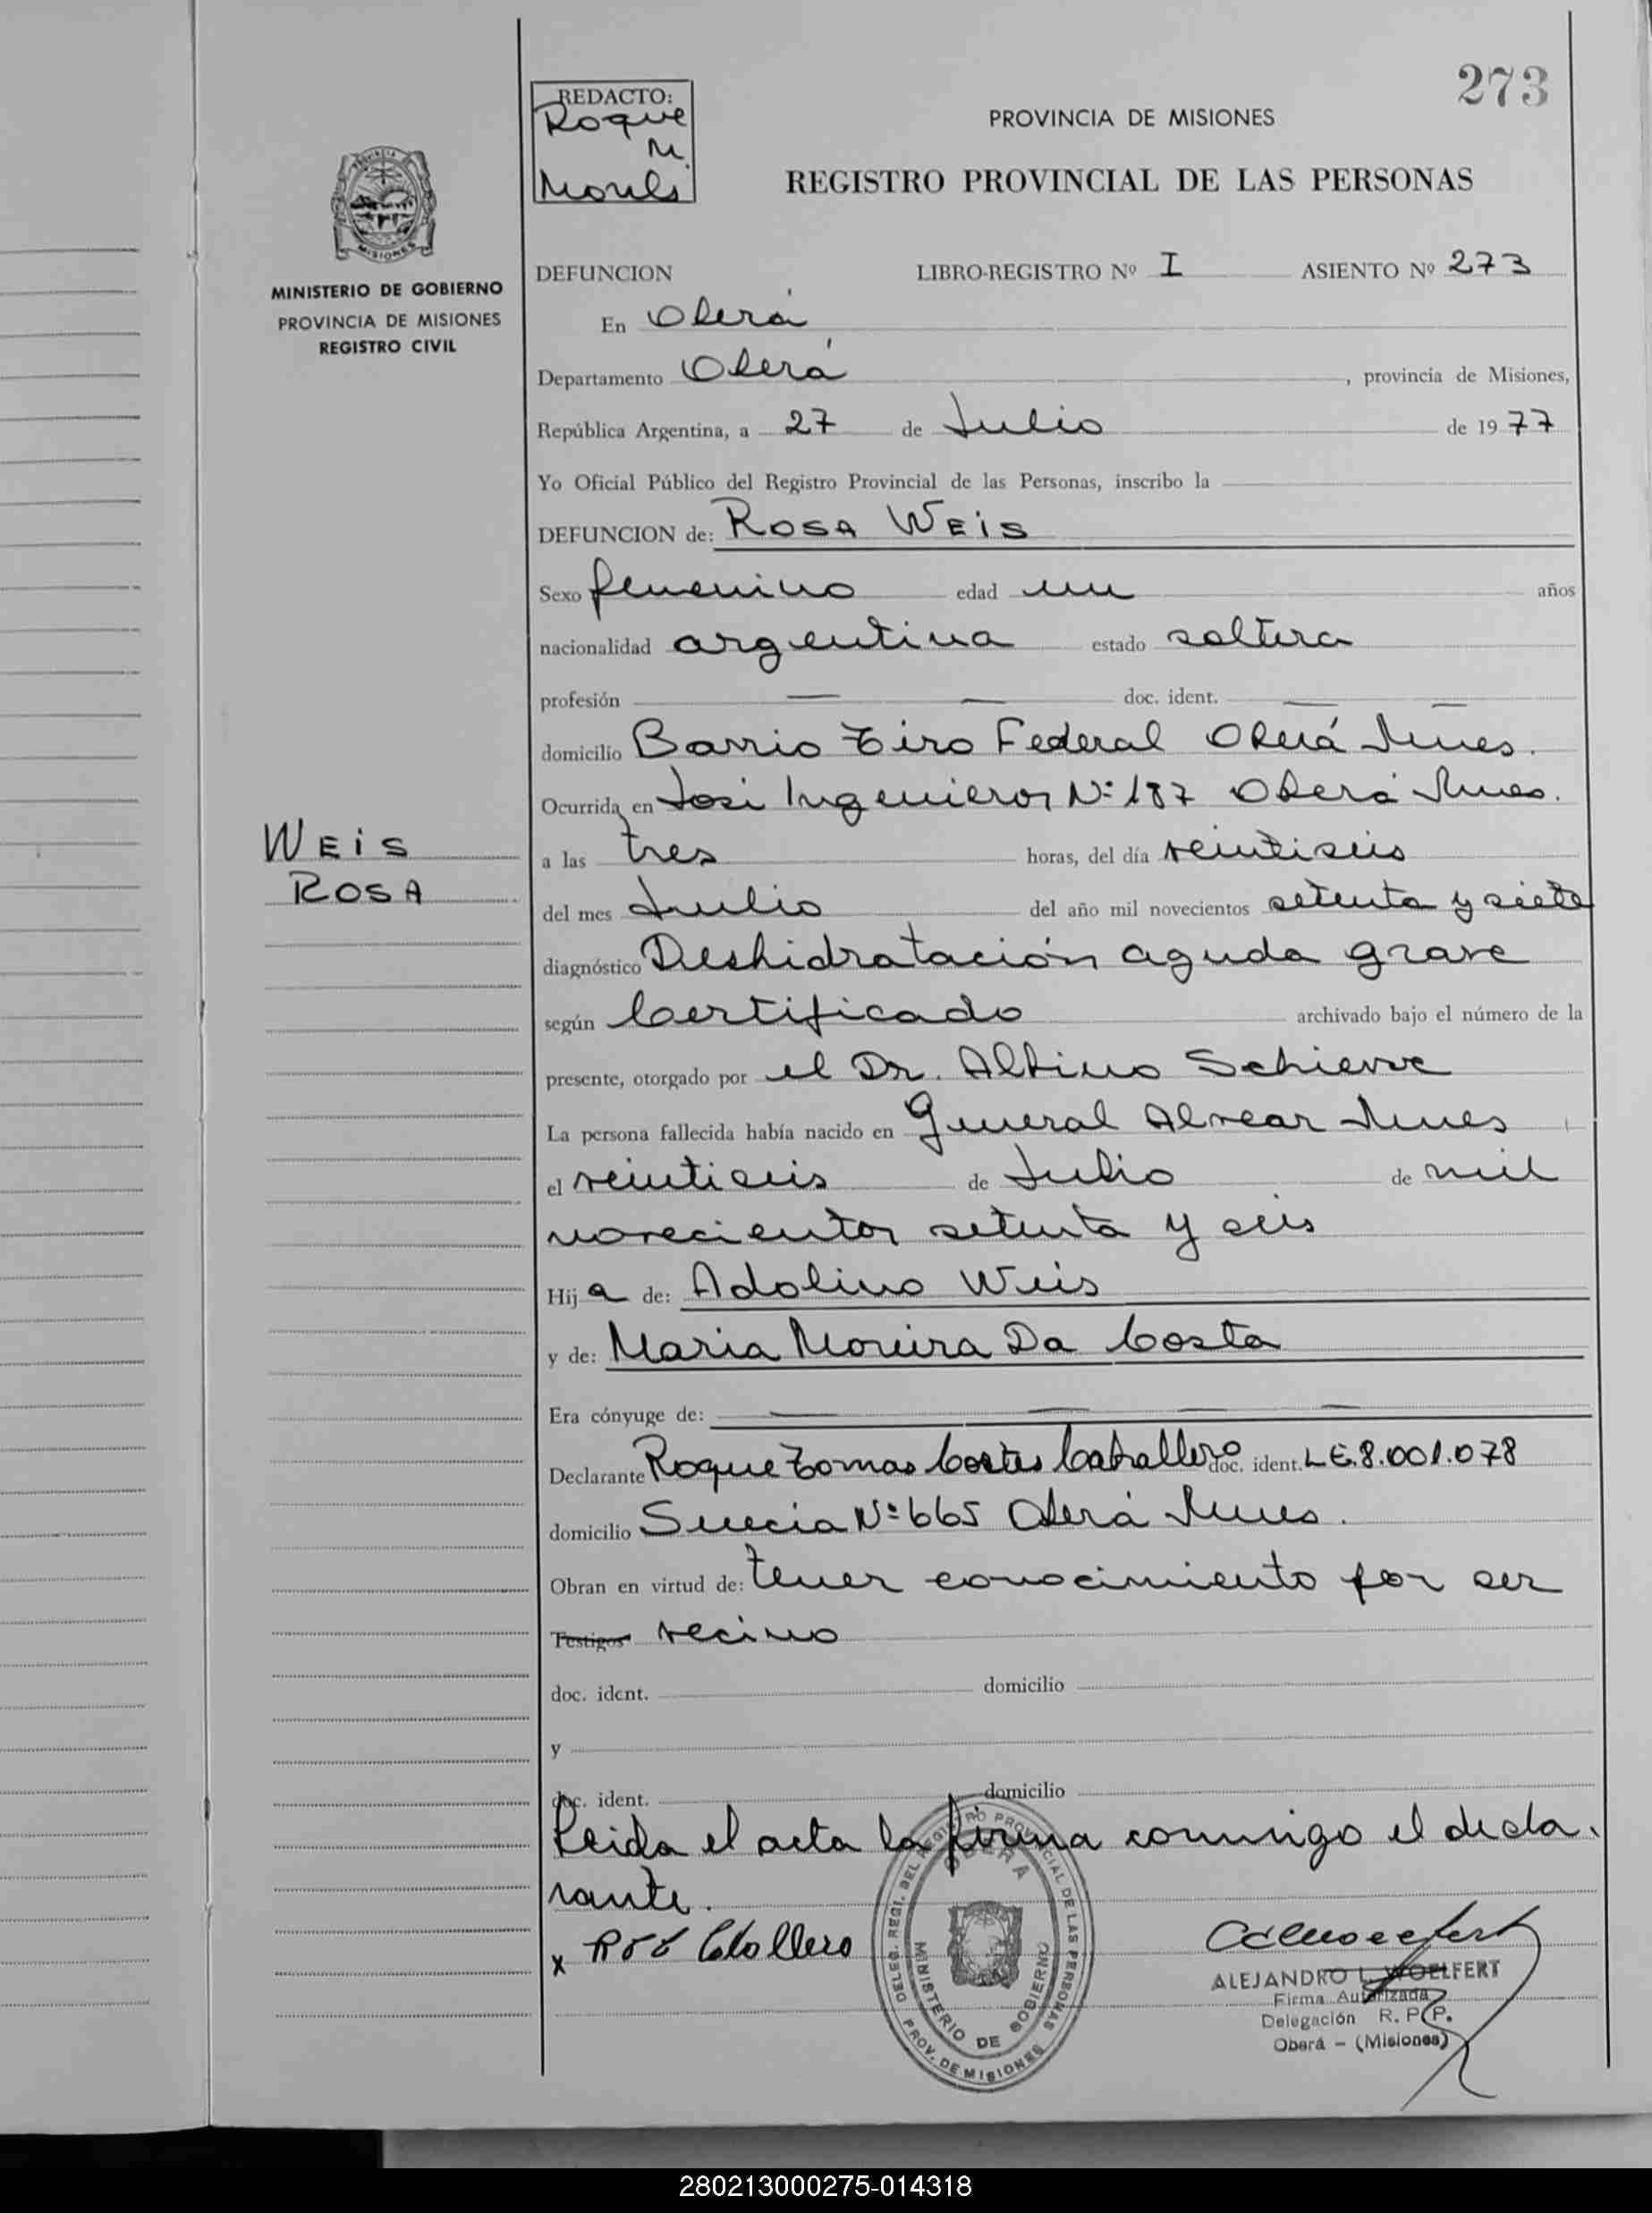 273
REDACTO:
Roque
M.
PROVINCIA DE MISIONES
REGISTRO PROVINCIAL DE LAS PERSONAS
MINISTERIO DE GOBIERNO
PROVINCIA DE MISIONES
REGISTRO CIVIL
DEFUNCION LIBRO-REGISTRO Nº I ASIENTO Nº 273
En Oberá
Departamento Oberá, provincia de Misiones,
República Argentina, a 27 de Julio de 1977
Yo Oficial Público del Registro Provincial de las Personas, inscribo la
DEFUNCION de: ROSA WEIS
Sexo femenino edad un años
nacionalidad argentina estado soltera
profesión — — doc. ident. — —
domicilio Barrio Tiro Federal Oberá Mnes.
Ocurrida en José Ingenieros Nº 187 Oberá Mnes.
WEIS
ROSA
a las tres horas, del día veintiseis
del mes Julio del año mil novecientos setenta y siete
diagnóstico Deshidratación aguda grave
según Certificado archivado bajo el número de la
presente, otorgado por el Dr. Albino
La persona fallecida había nacido en General Alvear Mnes
el veintiseis de Julio de mil
novecientos setenta y seis
Hija de: Adolino Weis
y de: Maria Moreira Da Costa
Era cónyuge de: — — — —
Declarante Roque Tomas Cortes Caballero doc. ident. L E. 8.001.078
domicilio Suecia Nº 665 Oberá Mnes.
Obran en virtud de: tener conocimiento por ser
Testigos vecino
doc. ident. domicilio
y
doc. ident. domicilio
Leida el acta la firma conmigo el decla-
rante.
x Caballero
DELEG. REGI. DEL REGISTRO PROVINCIAL DE LAS PERSONAS
OBERA
MINISTERIO DE GOBIERNO
PROV. DE MISIONES
ALEJANDRO L. WOELFERT
Firma Autorizada
Delegación R. P. P.
Oberá - (Misiones)
280213000275-014318